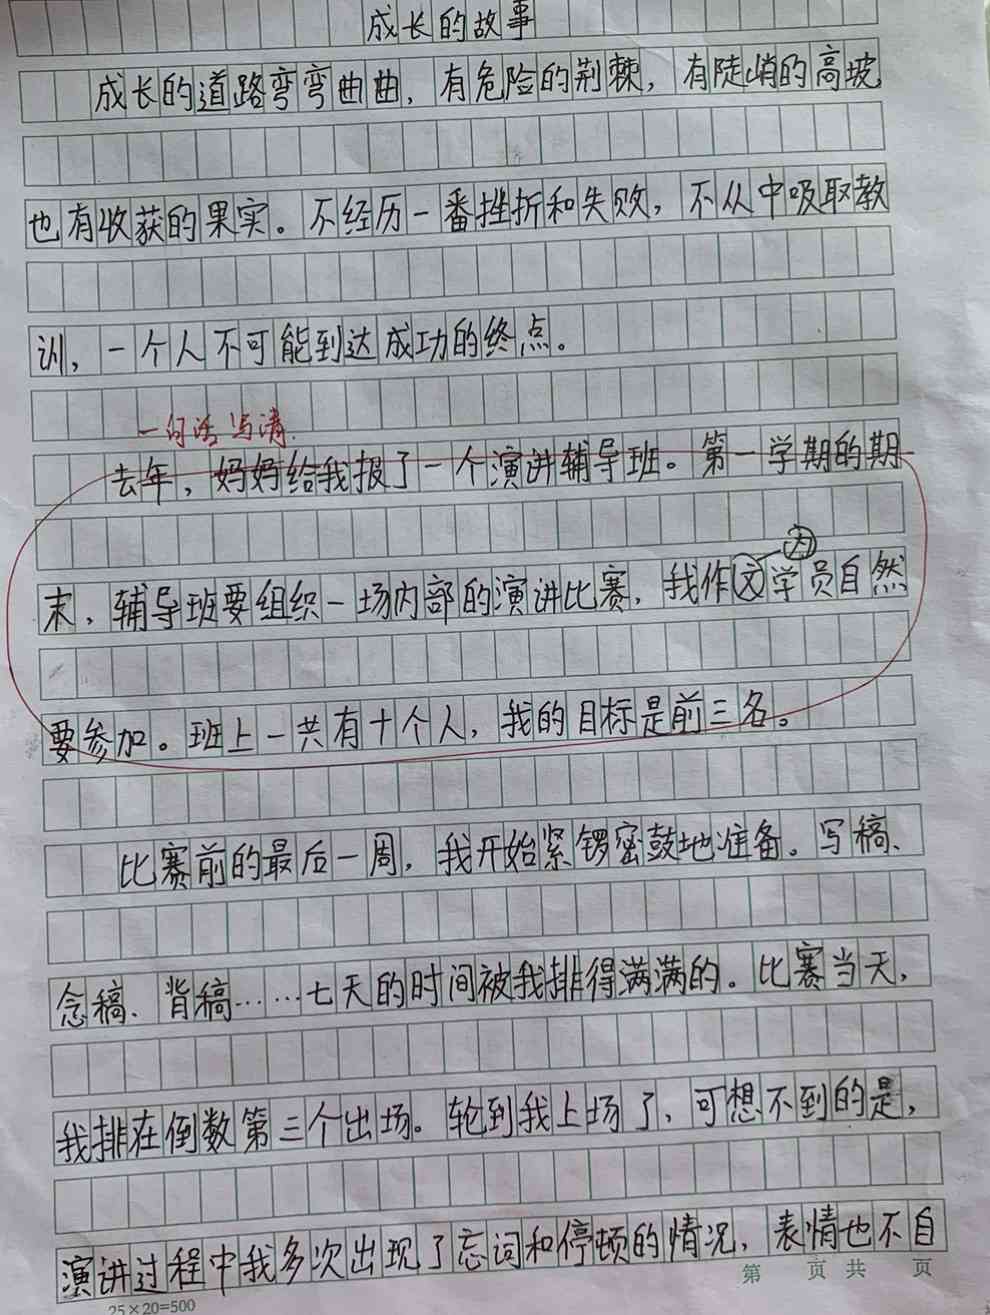 成长的故事
成长的道路弯弯曲曲，有危险的荆棘，有陡峭的高坡
也有收获的果实。不经历一番挫折和失败，不从中吸取教
训，一个人不可能到达成功的终点。
一句话写清.
去年，妈妈给我报了一个演讲辅导班。第一学期的期
因
末，辅导班要组织一场内部的演讲比赛，我作文学员自然
要参加。班上一共有十个人，我的目标是前三名。
比赛前的最后一周，我开始紧锣密鼓地准备。写稿、
念稿、背稿……七天的时间被我排得满满的。比赛当天，
我排在倒数第三个出场。轮到我上场了，可想不到的是，
演讲过程中我多次出现了忘词和停顿的情况，表情也不自
第 页 共 页
25×20=500